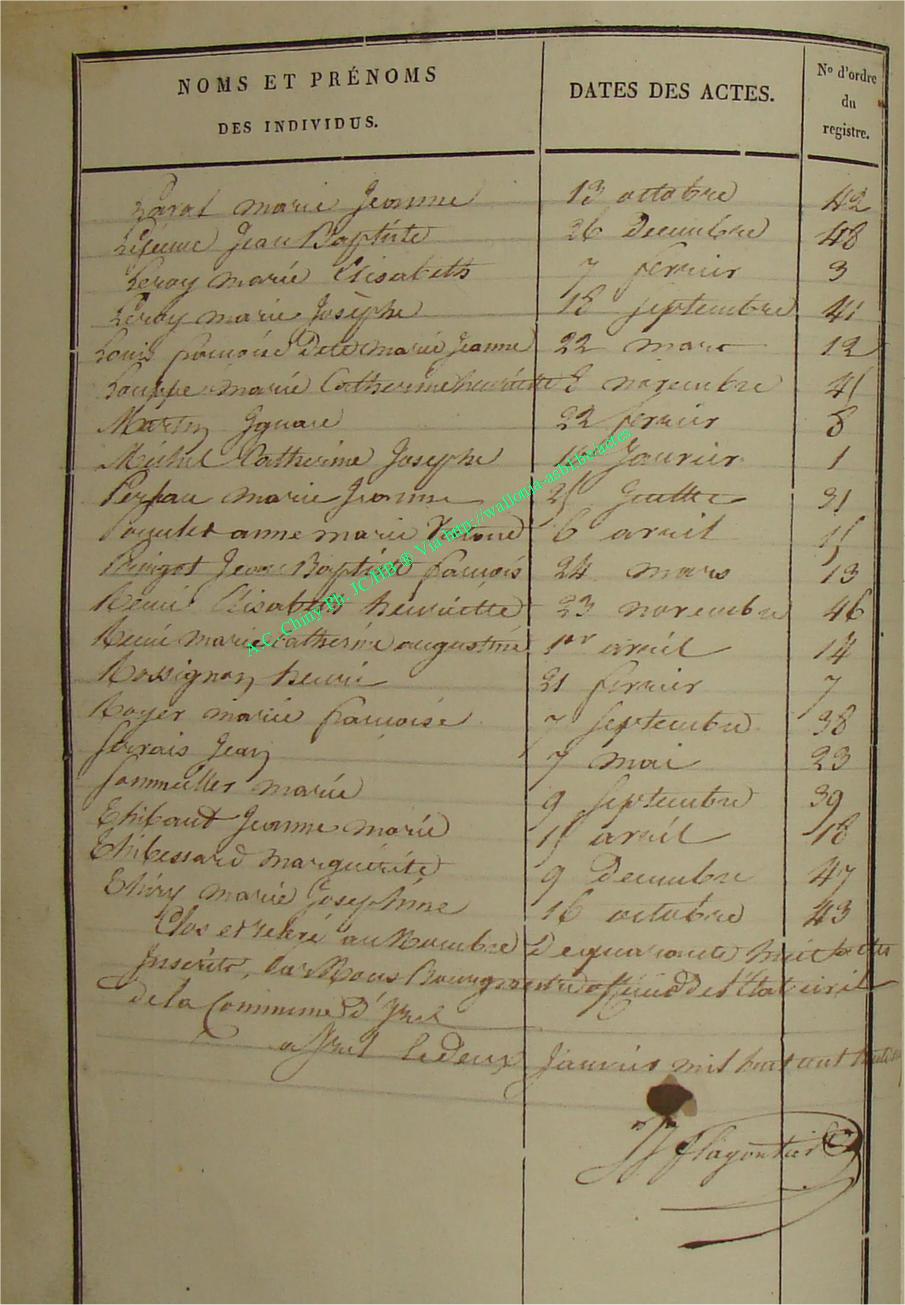 NOMS ET PRÉNOMS
DES INDIVIDUS.
DATES DES ACTES.
N° d'ordre
du
registre.
Larat marie Jeanne 13 octobre 42
Lejeune Jean Baptiste 26 Decembre 48
Leroy marie Elisabeth 7 fevrier 3
Leroy marie Josèphe 18 septembre 41
Louis marie Jeanne 22 mars 12
Louppe marie Catherine henriette 8 novembre 45
Martin Ignace 22 fevrier 8
Michel Catherine Josephe Janvier 1
marie Jeanne 25 Juillet 31
anne marie 6 avril 15
Pringot Jean Baptiste francois 24 mars 13
Remi Elisabeth henriette 23 novembre 46
Remi marie catherine augustine 1er avril 14
Rossignon henri 21 fevrier 7
Royer marie francoise 7 septembre 38
Servais Jean 7 mai 23
marie 9 septembre 39
Thibaut Jeanne marie 15 avril 18
Thibessard marguerite 9 Decembre 47
Thiry marie Josephine 16 octobre 43
Clos et au Nombre De quarante huit actes
Inscrits, par Nous Bourgmestre officier de l'état civil
de la Commune D'Izel
a Izel le Deux Janvier mil huit cent
A C. Chiny Ph. JC/HB ® Via http://wallonia-asbl.be/actes